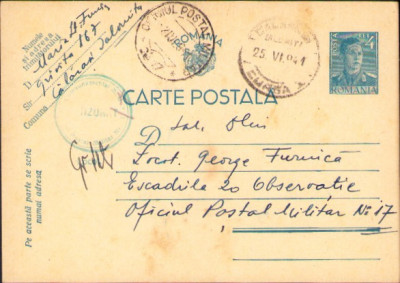 Numele
și adresa
trimițătorului
D.
Str.
Comuna
Maria
Grivița 167
Călărași Ialomița
OFICIUL POSTAL
MILITAR
ROMANIA
CALARASI
25 VI 941
POSTA
4
ROMANIA
CARTE POSTALA
D
Locot. George Furnică
Escadrila 20 Observație
Oficiul Poștal Militar No 17
Pe această parte se scrie
numai adresa